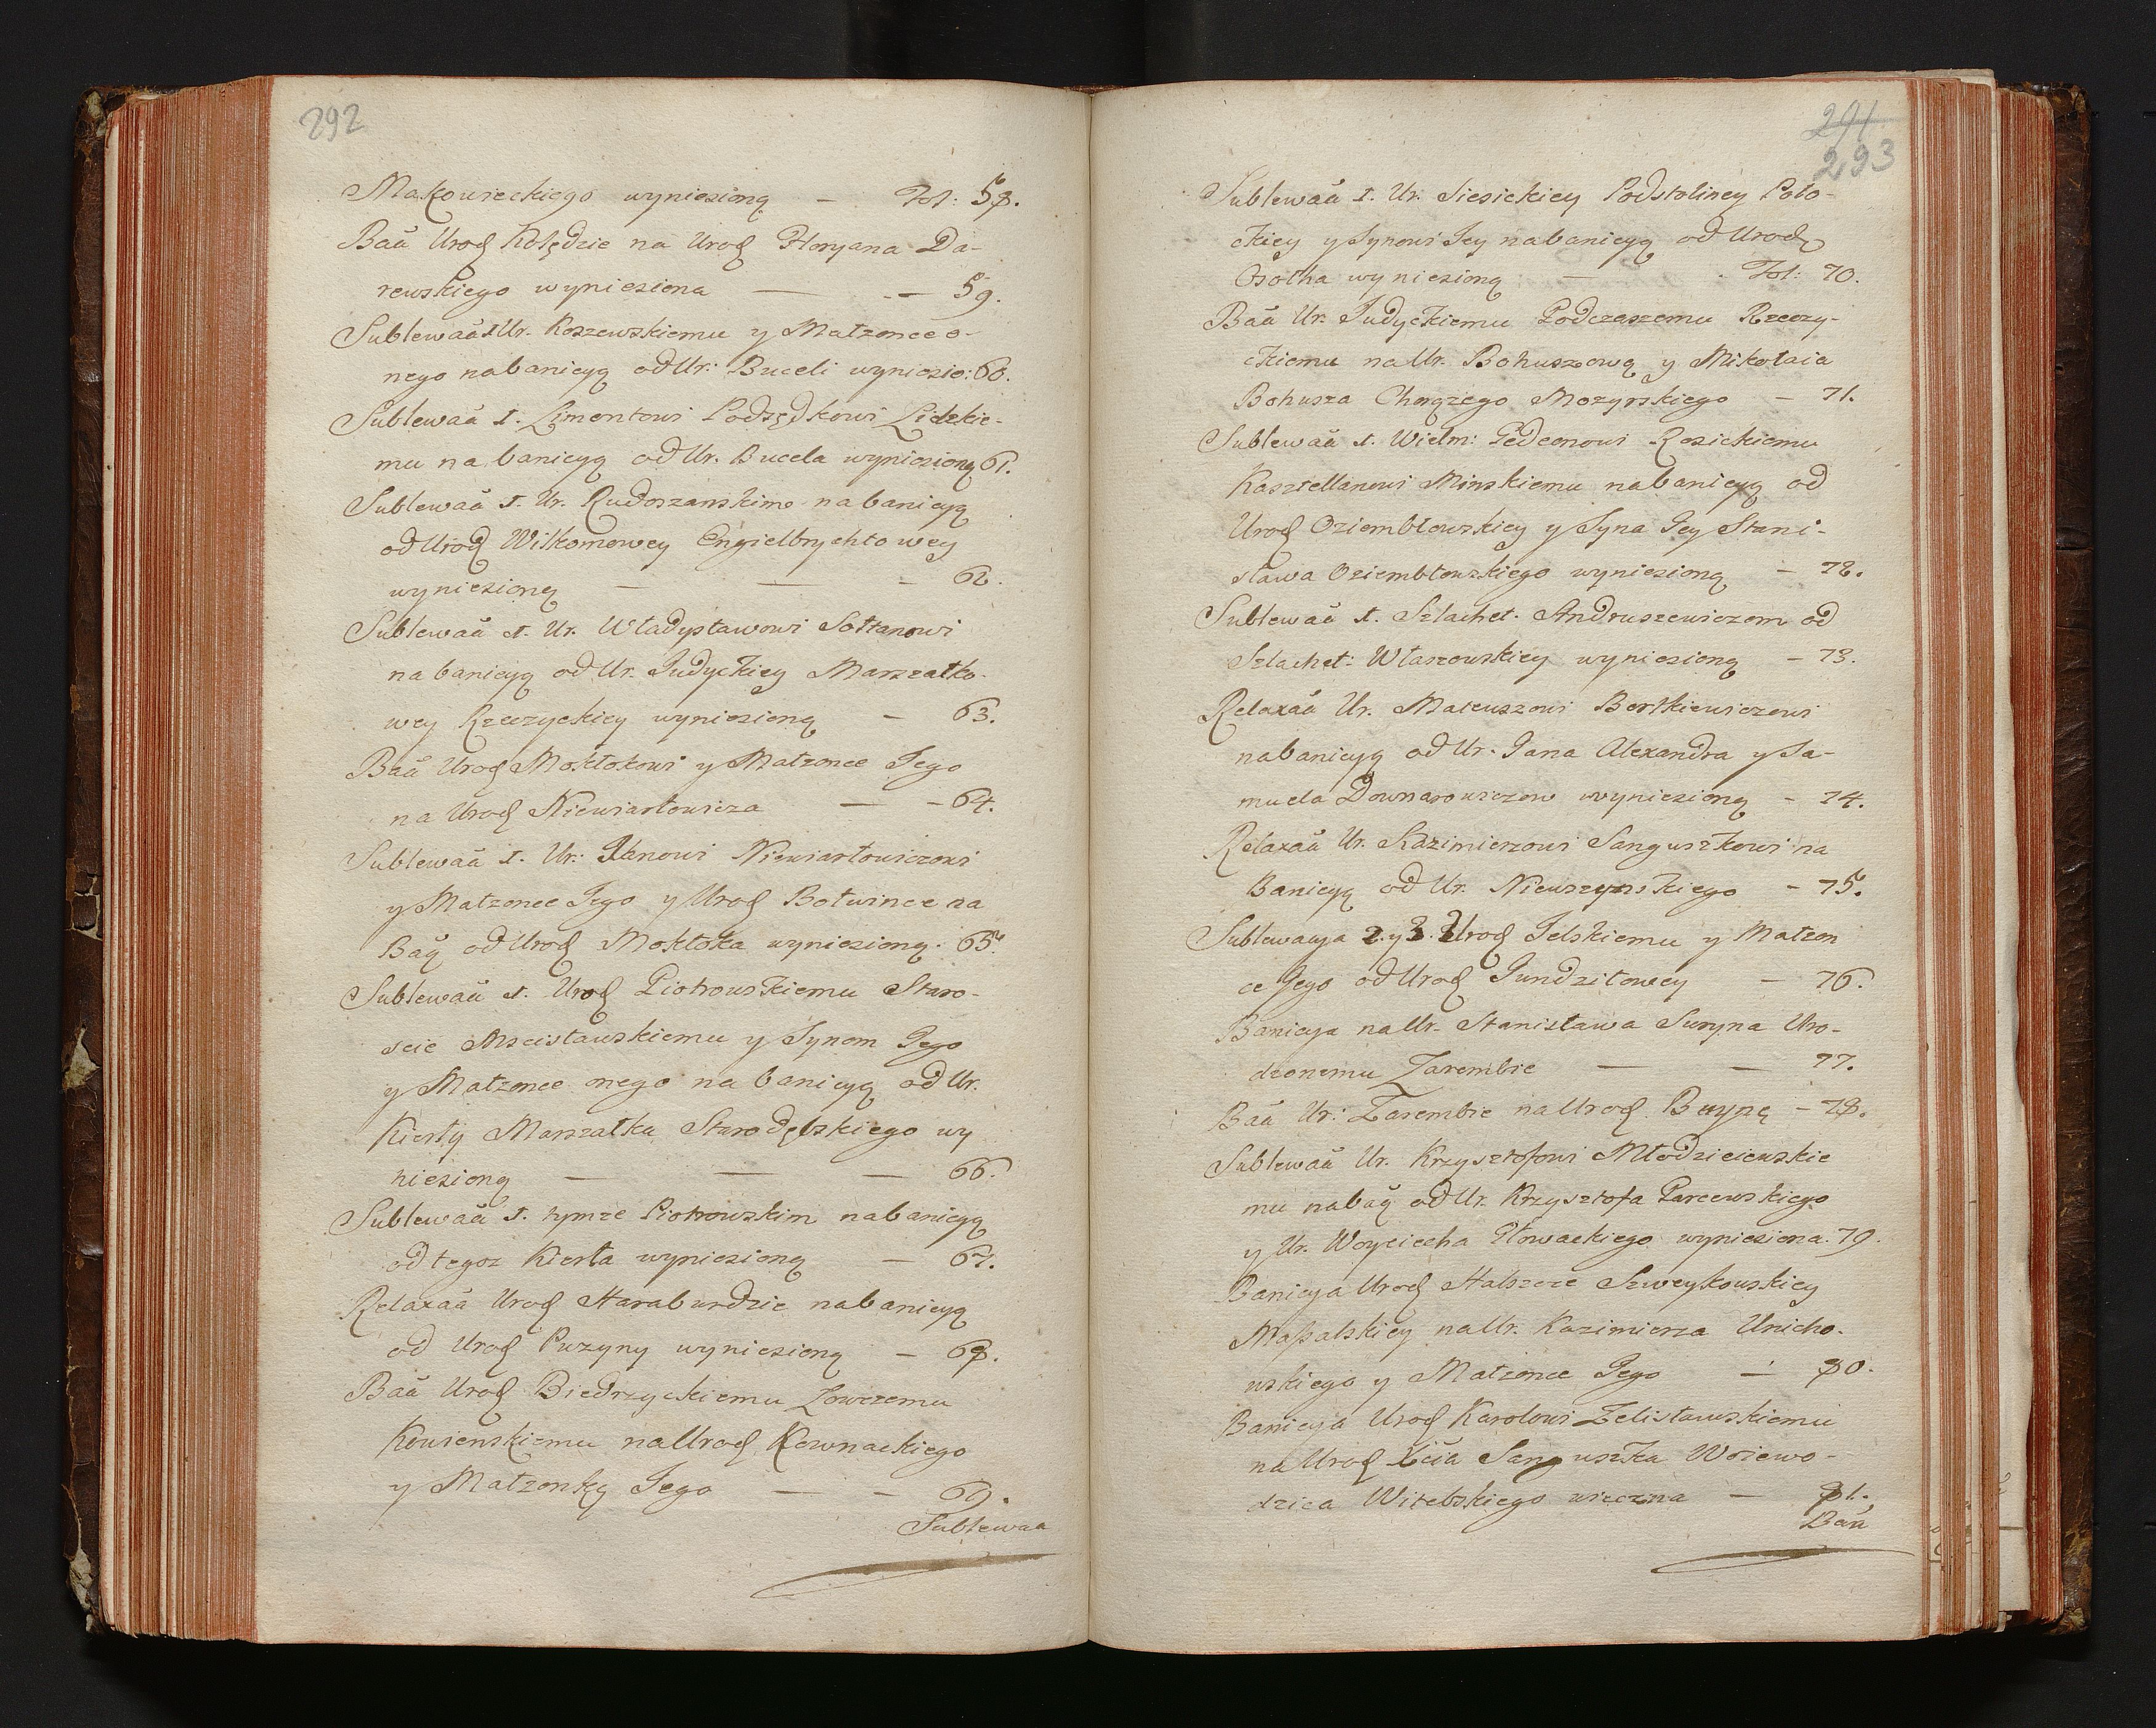 292
Makowieckiego wyniesioną — Fol: 58.
Baa Urod Kolędzie na Urod Floryana Da-
rewskiego wyniesiona — — 59.
Sublewaa 1 Ur. Koszewskiemu y Małżonce o-
nego nabanicyą od Ur: Buceli wyniesio: 60.
Sublewaa 1. Limontowi Podsędkowi Lidzkie-
mu na banicyą od Ur. Bucela wyniesioną 61.
Sublewaa 1. Ur. Rudoszanskim na banicyą
od Urod Wilkomowey Engielbrychtowey
wyniesioną — — - 62.
Sublewaa 1. Ur. Władysławowi Sołtanowi
na banicyą od Ur. Judyckiey Marszałko-
wey Rzeczyckiey wyniesioną — 63.
Baa Urod Mokłokowi y Małżonce Jego
na Urod Niewiarłowicza — - 64.
Sublewaa 1. Ur: Janowi Niewiarłowiczowi
y Małżonce Jego y Urod Botwince na
Baą od Urod Mokłoka wyniesioną. 65.
Sublewaa 1. Urod Piotrowskiemu Staro-
scie Mscisławskiemu y Synom Jego
y Małżonce onego na banicyą od Ur.
Kierły Marszałka Starodębskiego wy
niesioną — — — 66.
Sublewaa 1. tymże Piotrowskim nabanicyą
od tegoż Kierła wyniesioną — 67.
Relaxaa Urod Haraburdzie nabanicyą
od Urod Puzyny wyniesioną — 68.
Baa Urod Biedrzyckiemu Łowczemu
Kowienskiemu na Urod Kownackiego
y Małżonkę Jego — — 69.
Sublewaa
291
293
Sublewaa 1. Ur. Siesickiey Podstoliney Poło-
ckiey y Synowi Jey nabanicyą od Urod
Osołha wyniesioną — Fol: 70.
Baa Ur. Judyckiemu Podczaszemu Rzeczy-
ckiemu na Ur. Bohuszową y Mikołaia
Bohusza Chorążego Mozyrskiego — 71.
Sublewaa 1. Wielm: Gedeonowi Rosickiemu
Kasztellanowi Minskiemu nabanicyą od
Urod Oziembłowskiey y Syna Jey Stani-
sława Oziembłowskiego wyniesioną — 72.
Sublewaa 1. Szlachet. Andruszewiczom od
Szlachet: Własowskiey wyniesioną — 73.
Relaxaa Ur. Mateuszowi Bortkiewiczowi
nabanicyą od Ur. Jana Alexandra y Sa-
muela Downarowiczow wyniesioną - 74.
Relaxaa Ur. Kazimierzowi Sanguszkowi na
Banicyą od Ur. Niewszynskiego - 75.
Sublewacya 2. y 3. Urod Jelskiemu y Małżon
ce Jego od Urod Jundziłowey — 76.
Banicya na Ur. Stanisława Suryna Uro-
dzonemu Zarembie — — 77.
Baa Ur: Zarembie na Urod Buynę - 78.
Sublewaa Ur. Krzysztofowi Młodzieiewskie
mu nabaą od Ur. Krzysztofa Parcewskiego
y Ur. Woyciecha Głowackiego wyniesiona. 79.
Banicya Urod Halszce Szweykowskiey
Massalskiey na Ur. Kazimierza Unicho-
wskiego y Małżonce Jego — 80.
Banicya Urod Karolowi Zelisławskiemu
na Urod Xcia Sanguszka Woiewo-
dzica Witebskiego wieczna — 81.
Baa